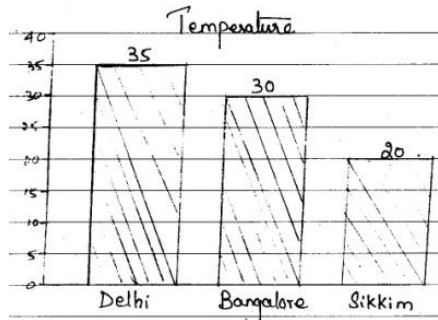 Temperature
40
35
35
30
30
25
20
20
15
10
5
0
Delhi Bangalore Sikkim